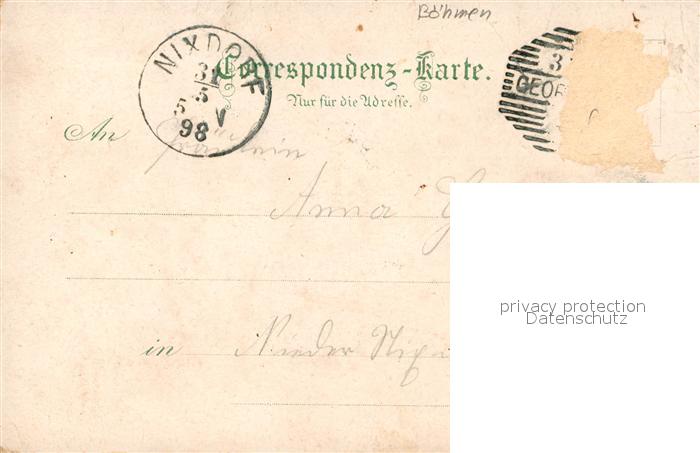 Böhmen
NIXDORF
31
5
5 V
98
Correspondenz-Karte.
Nur für die Adresse.
3
GEOR
An Fräulein
Anna
in Nieder
privacy protection
Datenschutz